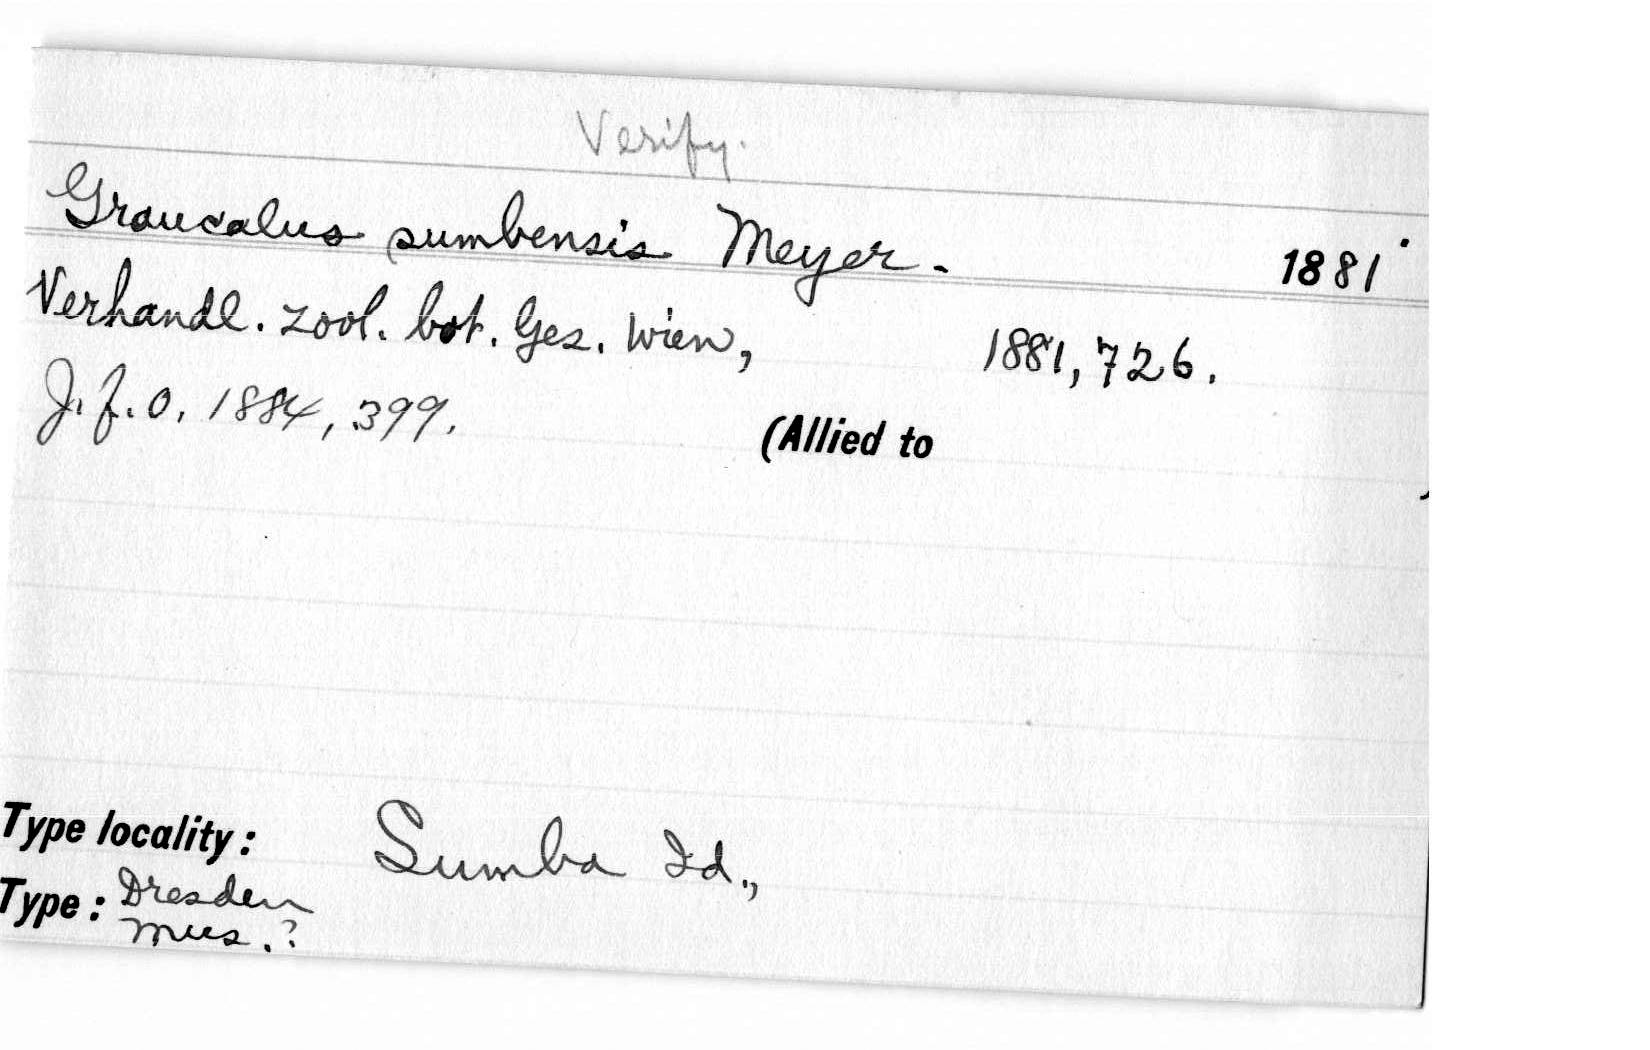 Verify.
Graucalus sumbensis Meyer. 1881
Verhandl. zool. bot. Ges. Wien, 1881, 726.
J. f. O. 1884, 399. (Allied to
Type locality: Sumba Id.,
Type: Dresden
Mus.?